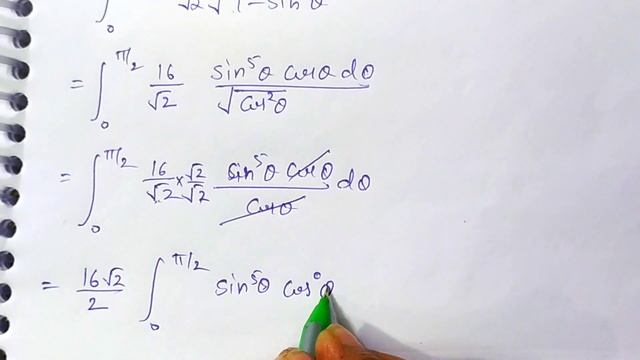 ∫₀ √2 √1 − sin θ
= ∫₀^π/2 16/√2 sin⁵θ cosθ dθ / √cos²θ
= ∫₀^π/2 16/√2 × √2/√2 sin⁵θ cosθ / cosθ dθ
= 16√2/2 ∫₀^π/2 sin⁵θ cos⁰θ